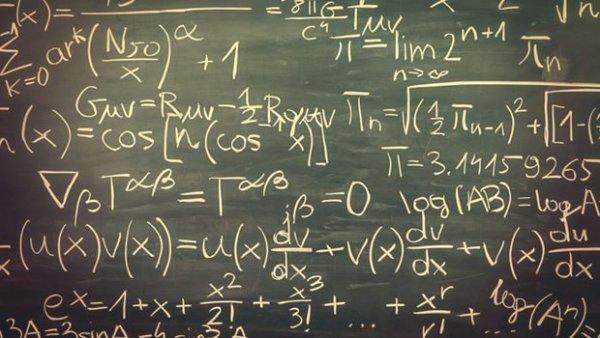 -1(x) = = 8πG/c⁴ Tμν √n
∑ k=0 ar^k (N50/x)^α + 1 π = lim n→∞ 2^(n+1) πn
Gμν = Rμν − 1/2 Rgμν πn = √((1/2 πn−1)² + [1−(
n(x) = cos[n(cos x)] π = 3.14159265
∇β T^αβ = T^αβ ;β = 0 log(AB) = log A
(u(x)v(x)) = u(x) dv/dx + v(x) dv/dx + v(x) du/dx
e^x = 1 + x + x²/2! + x³/3! + ... + x^r/r! + ... log(Aⁿ) =
3A = 3sinA − 4